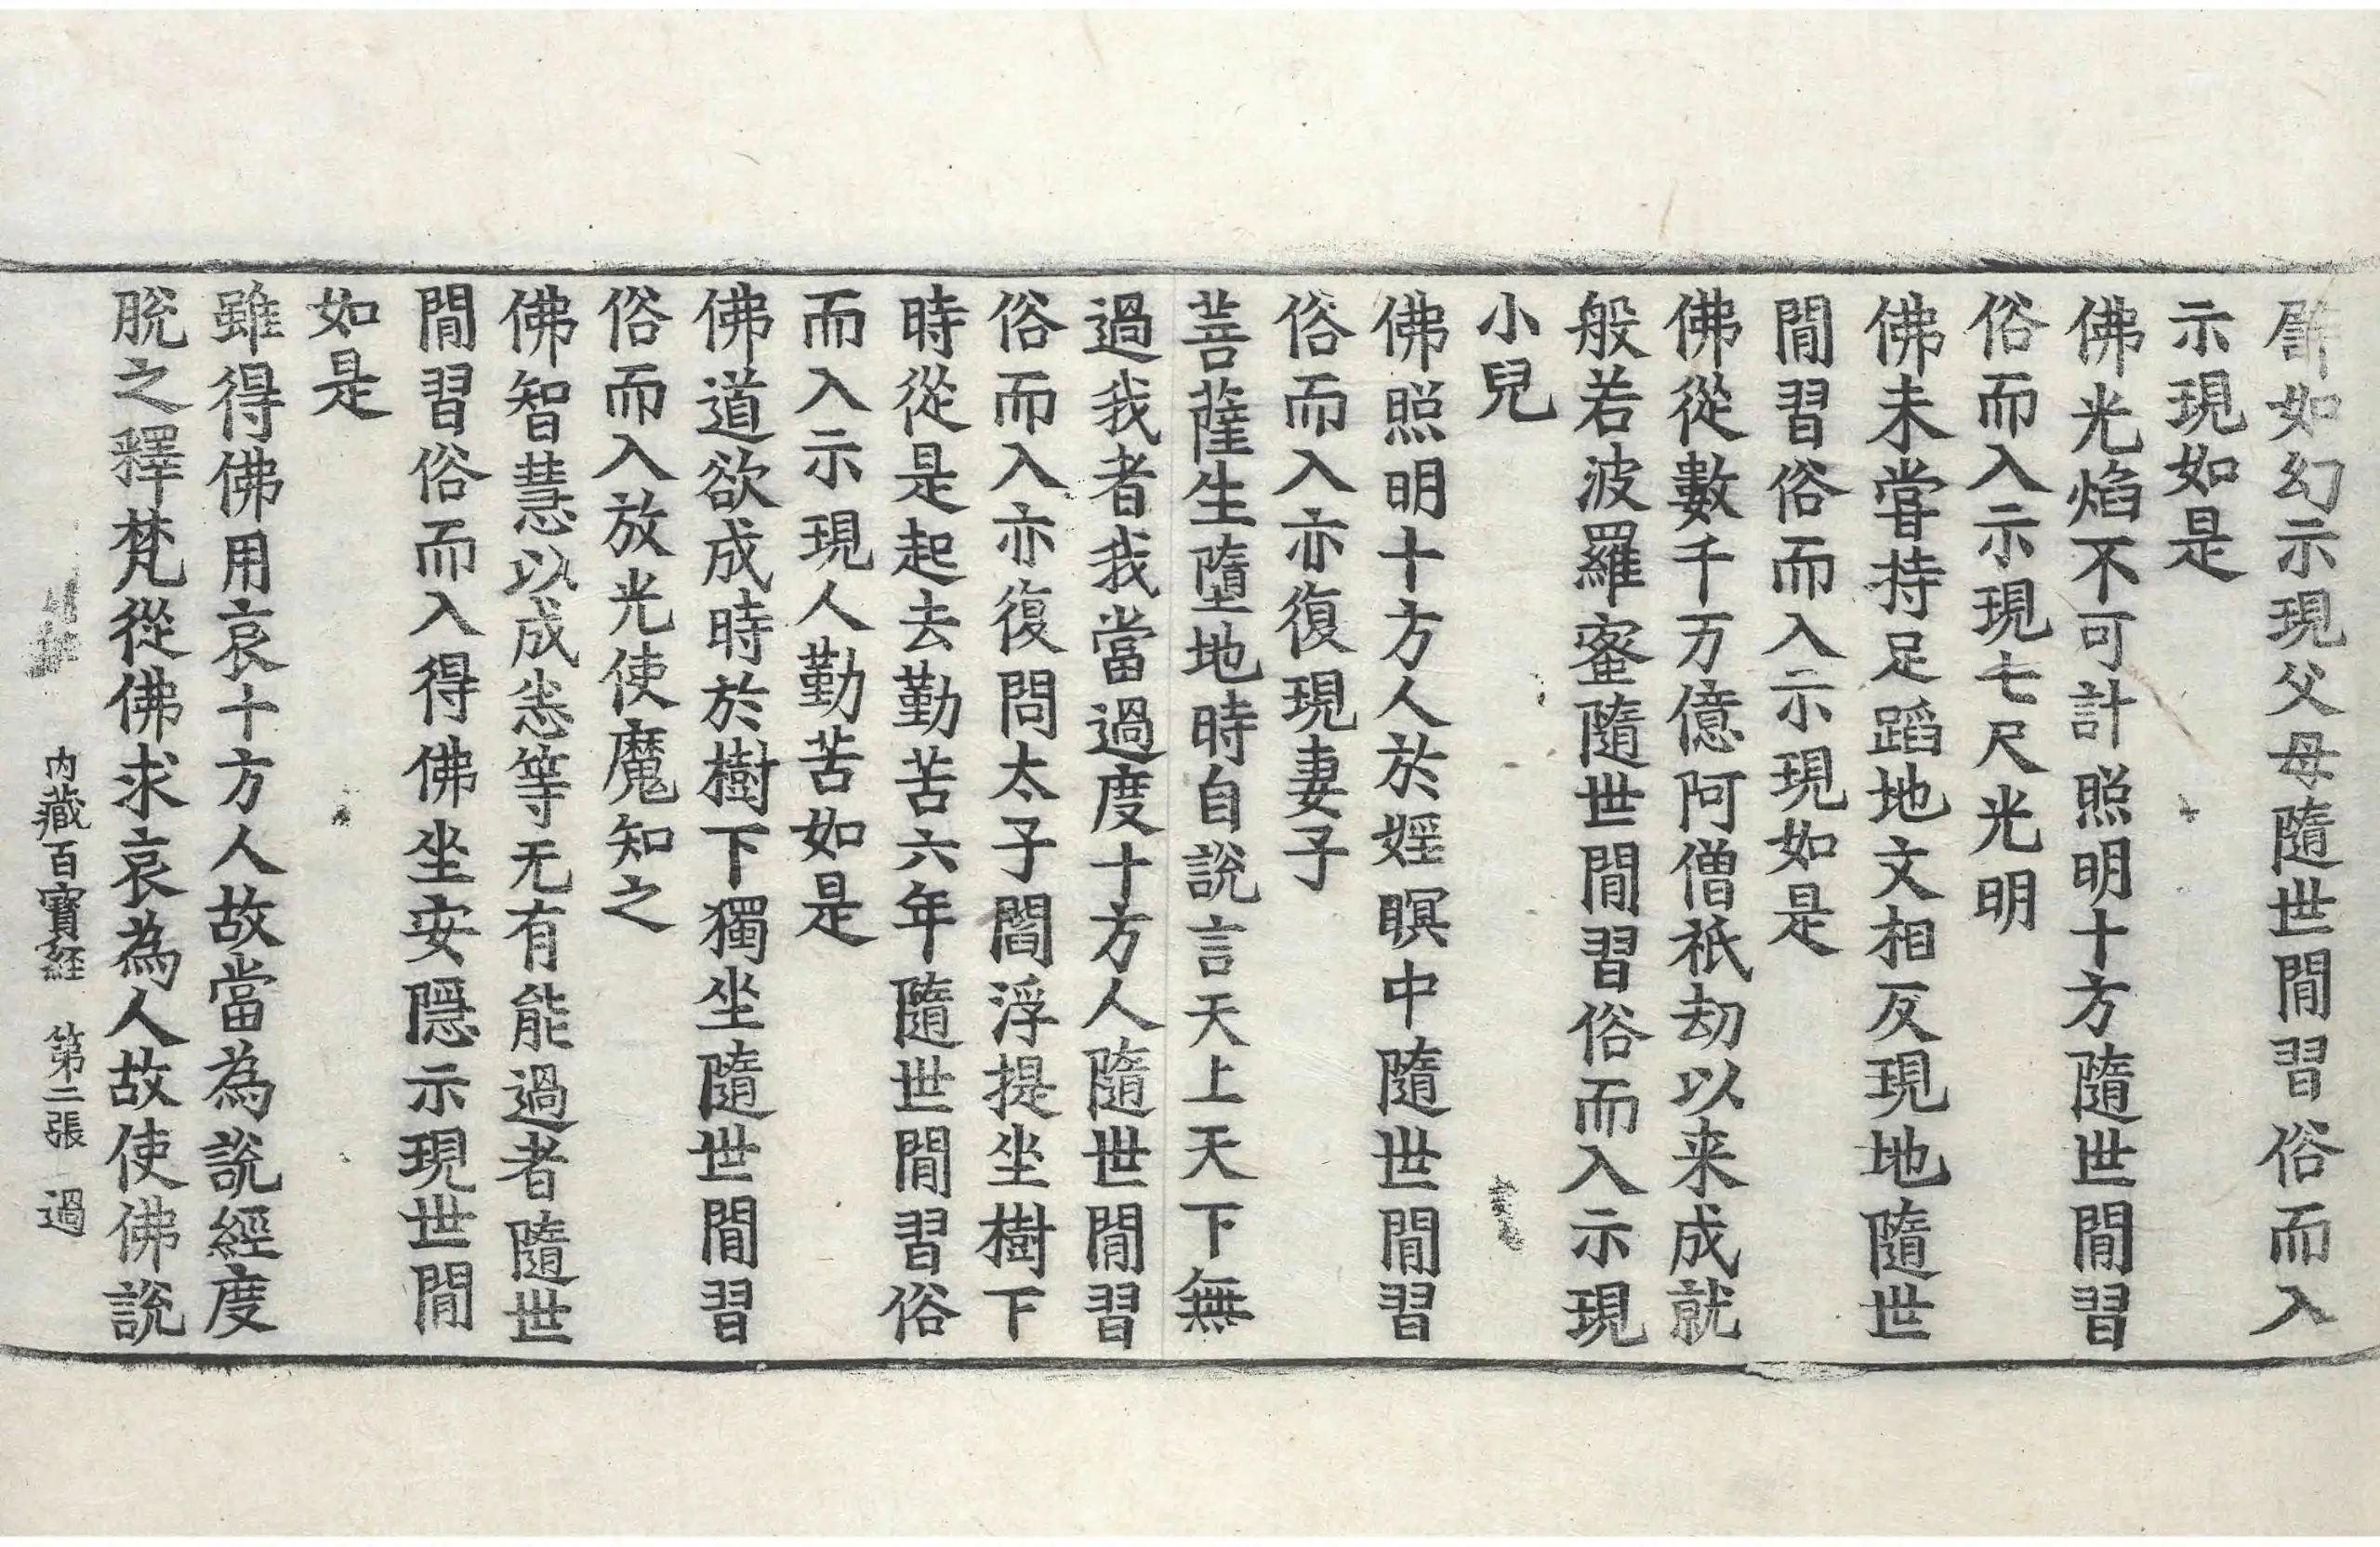 譬如幻示現父母隨世閒習俗而入
示現如是
佛光焰不可計照明十方隨世閒習
俗而入示現七尺光明
佛未甞持足蹈地文相反現地隨世
閒習俗而入示現如是
佛從數千万億阿僧祇劫以来成就
般若波羅蜜隨世閒習俗而入示現
小兒
佛照明十方人於婬瞑中隨世閒習
俗而入亦復現妻子
菩薩生墮地時自說言天上天下無
過我者我當過度十方人隨世閒習
俗而入亦復問太子閻浮提坐樹下
時從是起去勤苦六年隨世閒習俗
而入示現人勤苦如是
佛道欲成時於樹下獨坐隨世閒習
俗而入放光使魔知之
佛智慧以成悉等无有能過者隨世
閒習俗而入得佛坐安隱示現世閒
如是
雖得佛用哀十方人故當為說經度
脫之釋梵從佛求哀為人故使佛說
内藏百寶経 第三張 過